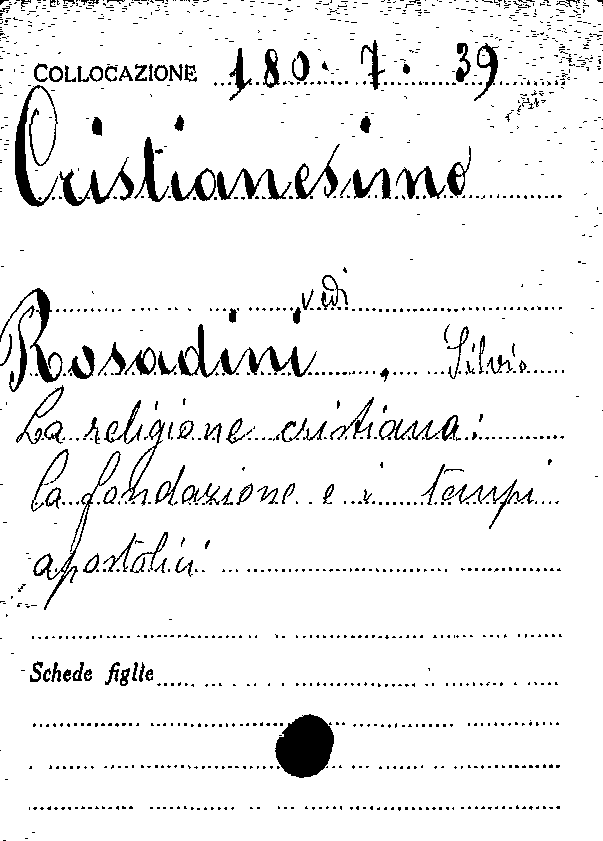 COLLOCAZIONE 180. 7. 39
Cristianesimo
vedi
Rosadini, Silvio
La religione cristiana:
la fondazione e i tempi
apostolici
Schede figlie